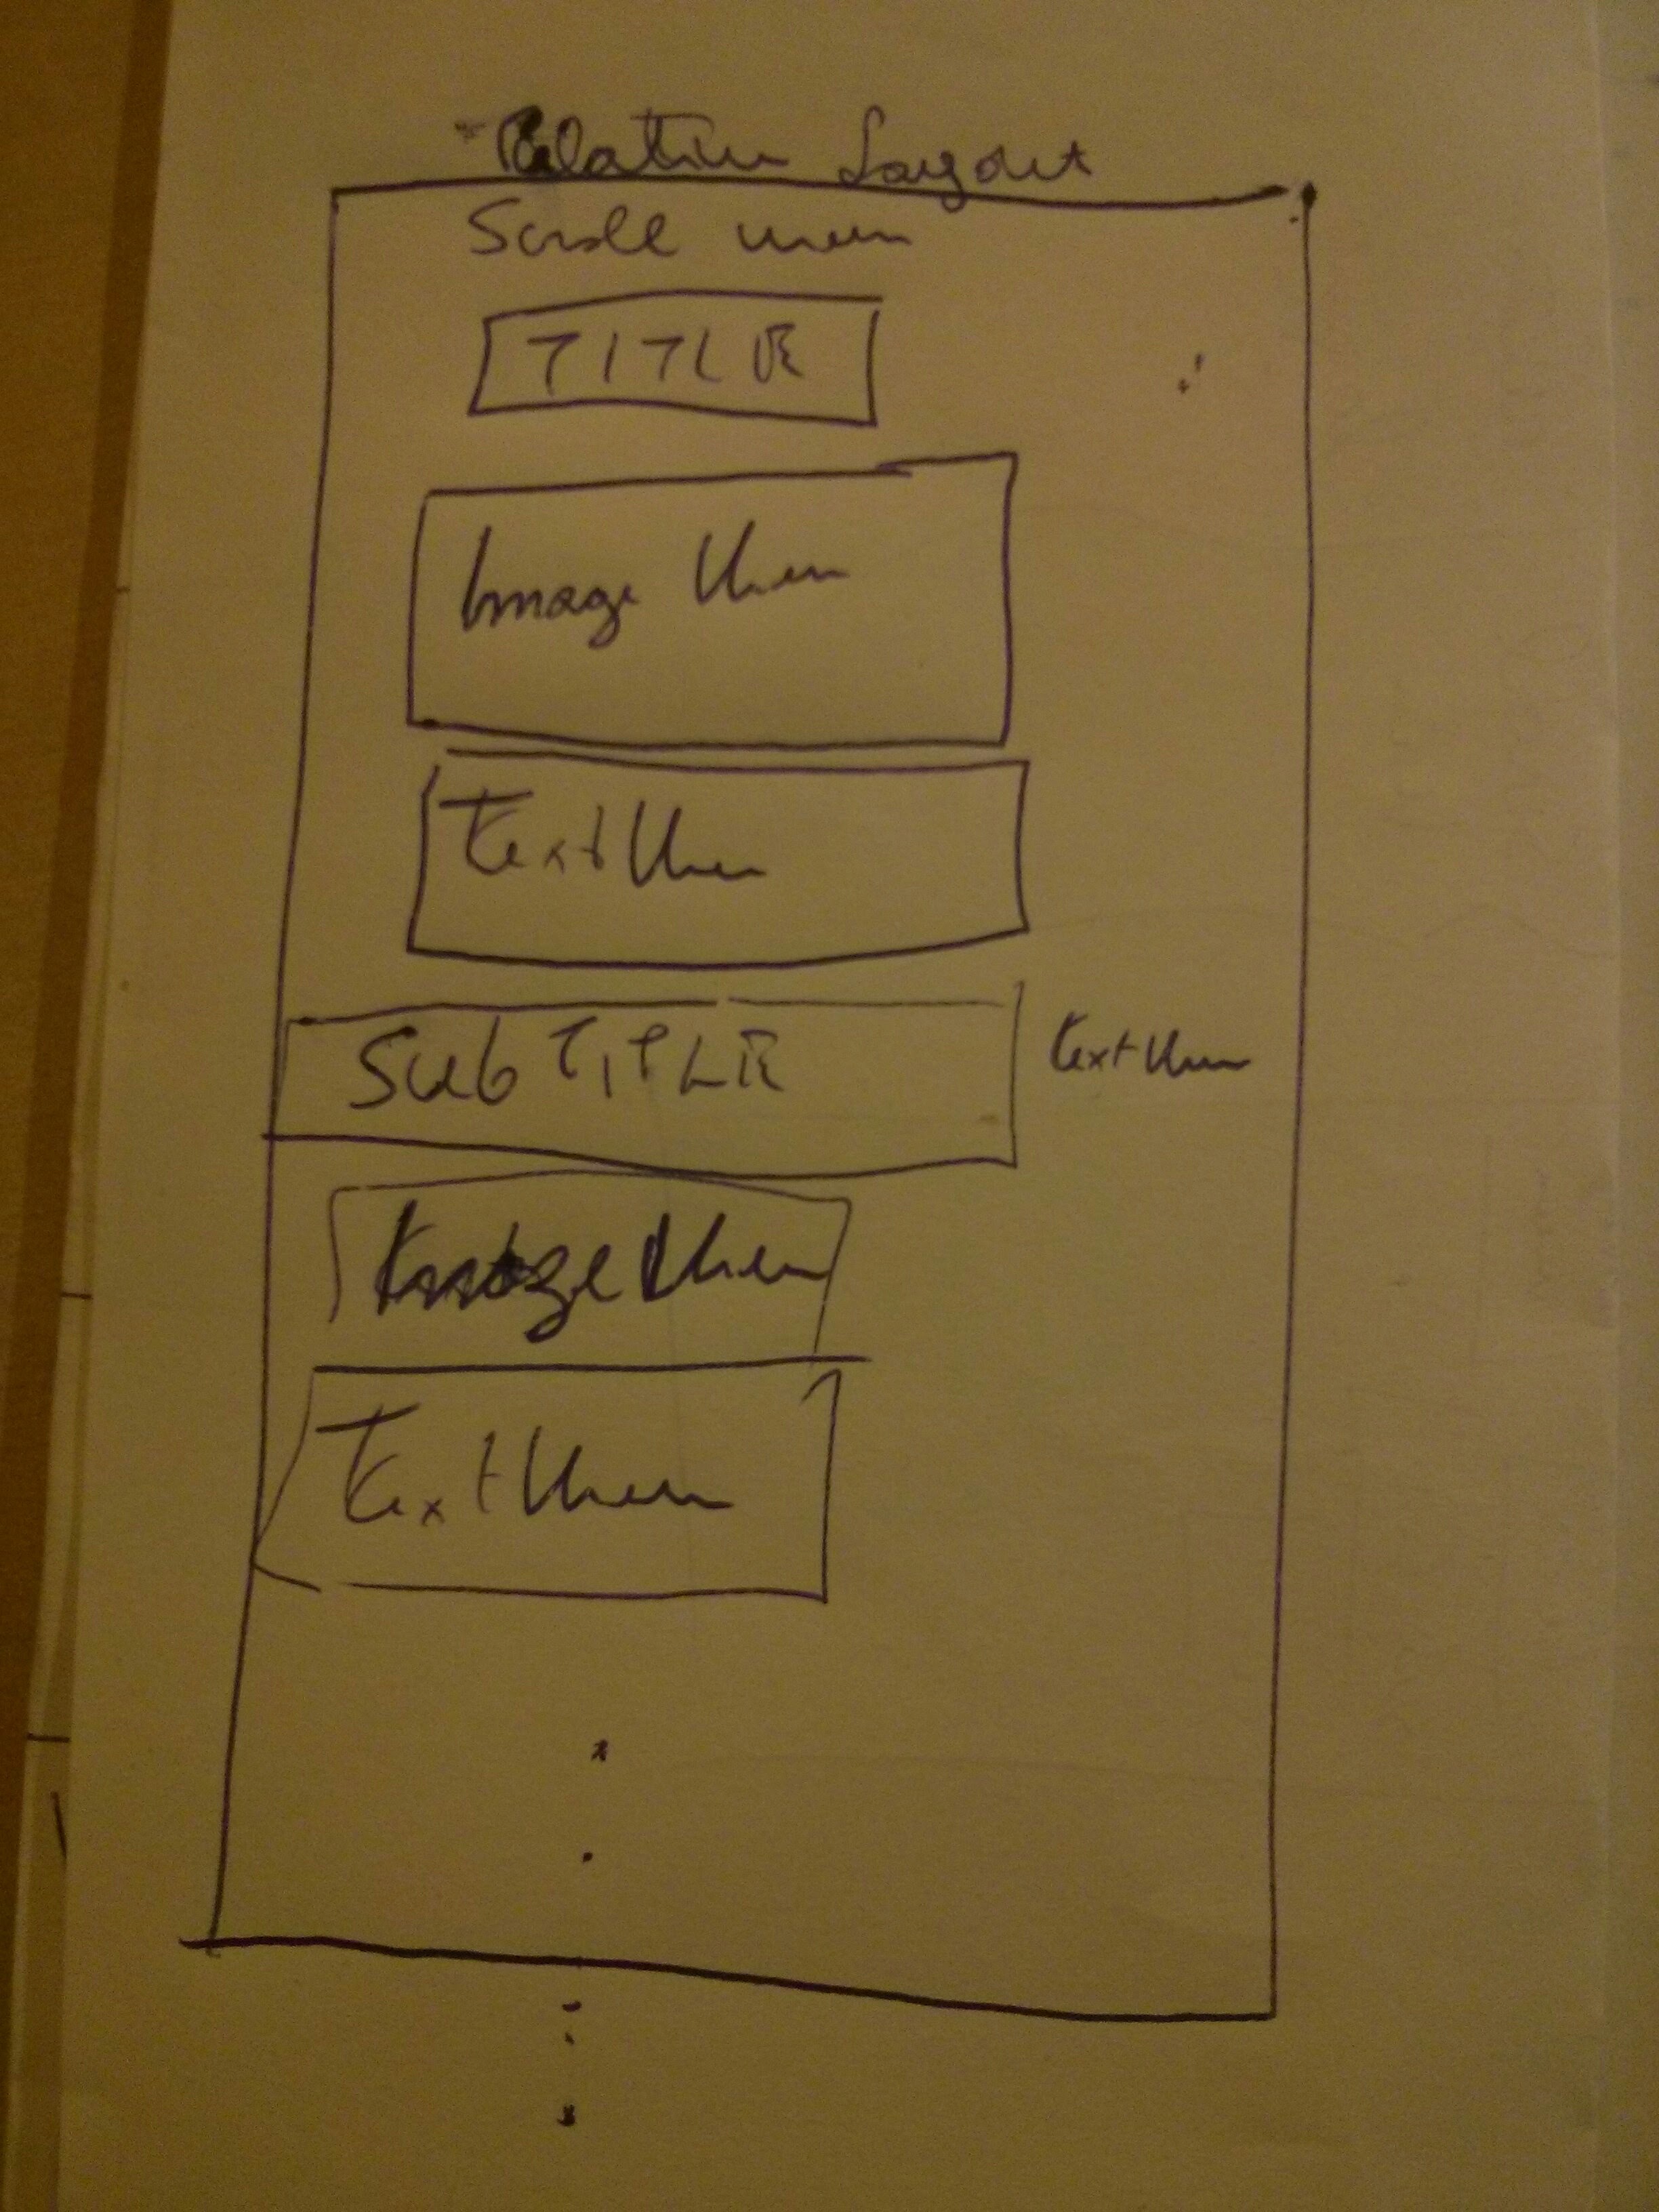 Relative Layout
Scroll view
TITLE
Image View
Text View
Sub TITLE
Text View
Image View
Text View